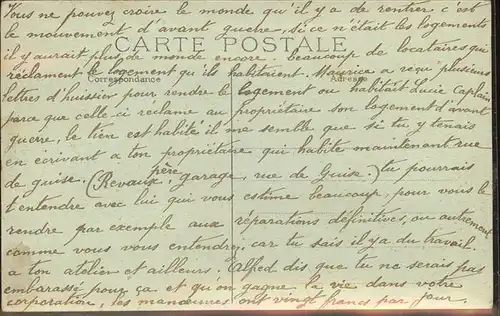 Vous ne pouvez croire le monde qu'il y a de rentrer c'est
le mouvement d'avant guerre, si ce n'était les logements
il y aurait plus de monde encore, beaucoup de locataires qui
CARTE POSTALE
réclament le logement qu'ils habitaient. Maurice a reçu plusieurs
Correspondance
Adresse
lettres d'huissier pour rendre le logement ou habitait Lucie Caplain
parce que celle-ci réclame au propriétaire son logement d'avant
guerre, le tien est habité il me semble que si tu y tenais
en écrivant a ton propriétaire qui habite maintenant rue
de guise. (Revaux père garage, rue de Guise) tu pourrais
t'entendre avec lui qui vous estime beaucoup, pour vous le
rendre par exemple aux réparations définitives, ou autrement
comme vous vous entendrez, car tu sais il y a du travail
a ton atelier et ailleurs. Alfred dis que tu ne serais pas
embarassé pour ça et qu'on gagne la vie dans votre
corporation, les manœuvres ont vingt francs par jour.